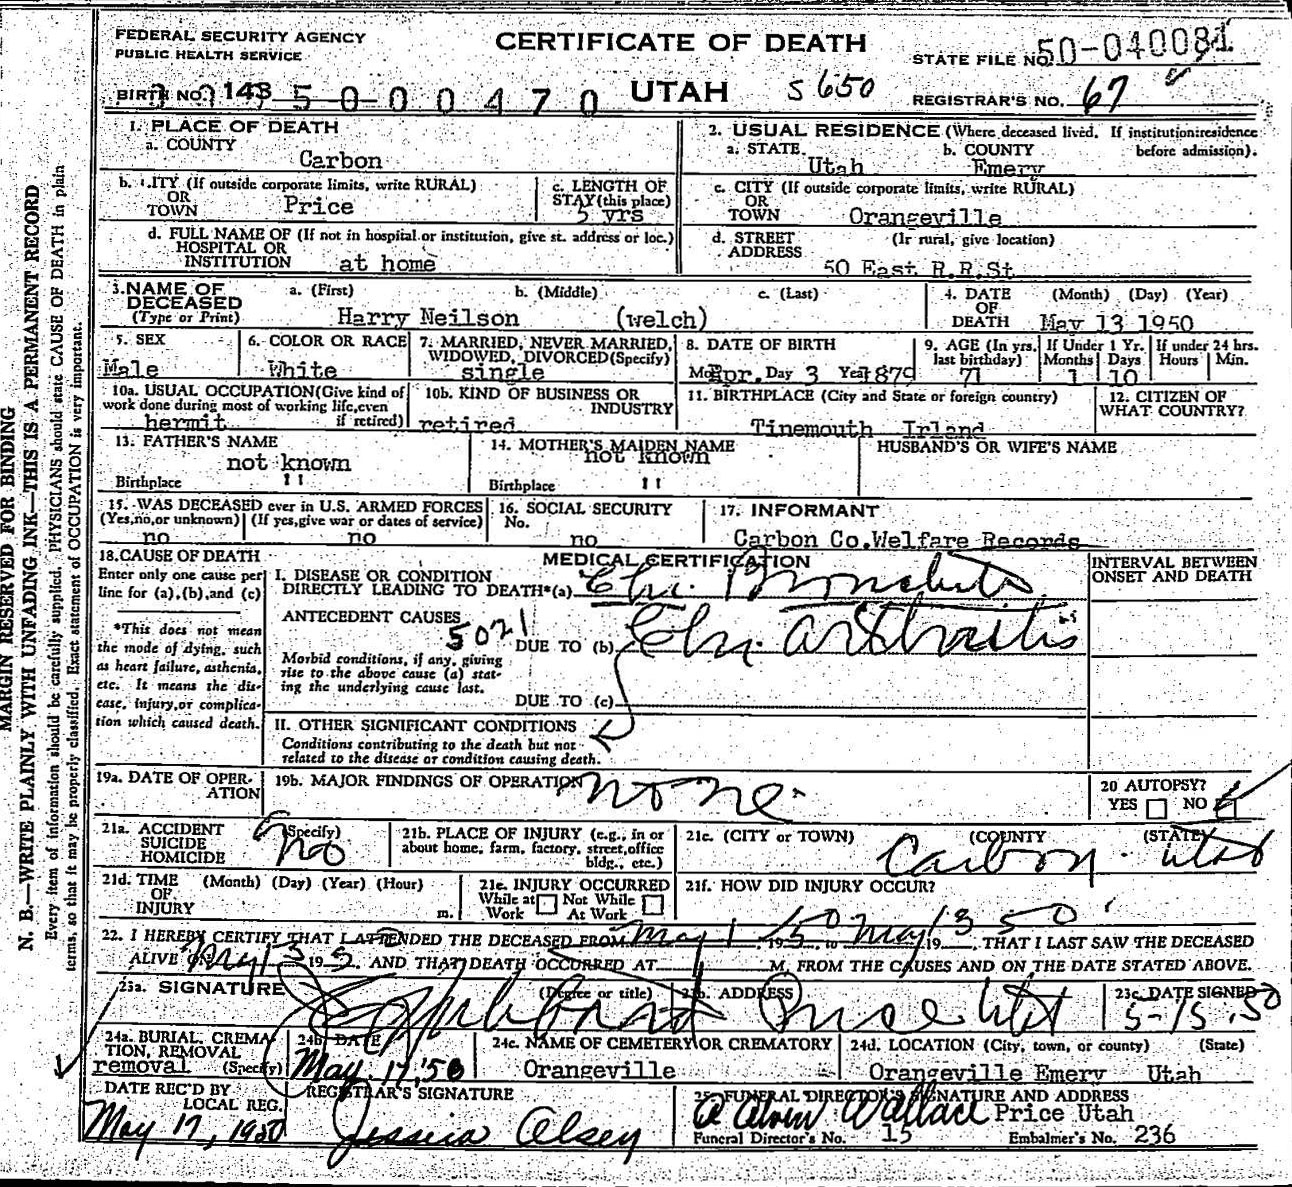 FEDERAL SECURITY AGENCY
PUBLIC HEALTH SERVICE
CERTIFICATE OF DEATH
STATE FILE NO. 50-040081
BIRTH NO. 143 5 0-0 0 4 7 0
UTAH
S650
REGISTRAR'S NO. 67
1. PLACE OF DEATH
a. COUNTY
Carbon
2. USUAL RESIDENCE (Where deceased lived. If institution:residence before admission).
a. STATE Utah b. COUNTY Emery
b. CITY (If outside corporate limits, write RURAL)
OR
TOWN Price
c. LENGTH OF
STAY (this place)
5 yrs
c. CITY (If outside corporate limits, write RURAL)
OR
TOWN Orangeville
d. FULL NAME OF (If not in hospital or institution, give st. address or loc.)
HOSPITAL OR
INSTITUTION at home
d. STREET (If rural, give location)
ADDRESS
50 East R.R.St
3. NAME OF DECEASED
(Type or Print)
a. (First) b. (Middle) c. (Last)
Harry Neilson (welch)
4. DATE OF DEATH (Month) (Day) (Year)
May 13 1950
5. SEX
Male
6. COLOR OR RACE
White
7. MARRIED, NEVER MARRIED, WIDOWED, DIVORCED (Specify)
single
8. DATE OF BIRTH
Mo Apr. Day 3 Year 1879
9. AGE (In yrs. last birthday)
71
If Under 1 Yr.
Months 1 Days 10
If under 24 hrs.
Hours Min.
10a. USUAL OCCUPATION (Give kind of work done during most of working life, even if retired)
hermit
10b. KIND OF BUSINESS OR INDUSTRY
retired
11. BIRTHPLACE (City and State or foreign country)
Tinemouth Irland
12. CITIZEN OF WHAT COUNTRY?
13. FATHER'S NAME
not known
Birthplace "
14. MOTHER'S MAIDEN NAME
not known
Birthplace "
HUSBAND'S OR WIFE'S NAME
15. WAS DECEASED ever in U.S. ARMED FORCES
(Yes, no, or unknown) (If yes, give war or dates of service)
no no
16. SOCIAL SECURITY
No.
no
17. INFORMANT
Carbon Co.Welfare Records
18. CAUSE OF DEATH
Enter only one cause per line for (a), (b), and (c)
*This does not mean the mode of dying, such as heart failure, asthenia, etc. It means the disease, injury, or complication which caused death.
MEDICAL CERTIFICATION
INTERVAL BETWEEN ONSET AND DEATH
I. DISEASE OR CONDITION
DIRECTLY LEADING TO DEATH*(a) Chr. Bronchitis
ANTECEDENT CAUSES
5021
DUE TO (b) Chr. arthraitis
Morbid conditions, if any, giving rise to the above cause (a) stating the underlying cause last.
DUE TO (c)
II. OTHER SIGNIFICANT CONDITIONS
Conditions contributing to the death but not related to the disease or condition causing death.
19a. DATE OF OPERATION
19b. MAJOR FINDINGS OF OPERATION
none
20 AUTOPSY?
YES NO
21a. ACCIDENT
SUICIDE
HOMICIDE
(Specify)
no
21b. PLACE OF INJURY (e.g., in or about home, farm, factory, street, office bldg., etc.)
21c. (CITY or TOWN) (COUNTY) (STATE)
Carbon. Utah
21d. TIME OF INJURY (Month) (Day) (Year) (Hour)
m.
21e. INJURY OCCURRED
While at Work Not While At Work
21f. HOW DID INJURY OCCUR?
22. I HEREBY CERTIFY THAT I ATTENDED THE DECEASED FROM May 1 1950, to May 13 50 19, THAT I LAST SAW THE DECEASED
ALIVE ON May 13 195, AND THAT DEATH OCCURRED AT M. FROM THE CAUSES AND ON THE DATE STATED ABOVE.
23a. SIGNATURE (Degree or title)
23b. ADDRESS
Price Utah
23c. DATE SIGNED
5-15.50
24a. BURIAL, CREMATION, REMOVAL (Specify)
removal
24b. DATE
May 17, '50
24c. NAME OF CEMETERY OR CREMATORY
Orangeville
24d. LOCATION (City, town, or county) (State)
Orangeville Emery Utah
DATE REC'D BY LOCAL REG.
May 17, 1950
REGISTRAR'S SIGNATURE
Jessica Olsey
25. FUNERAL DIRECTOR'S SIGNATURE AND ADDRESS
Wallace Price Utah
Funeral Director's No. 15 Embalmer's No. 236
MARGIN RESERVED FOR BINDING
N. B.—WRITE PLAINLY WITH UNFADING INK—THIS IS A PERMANENT RECORD
Every item of information should be carefully supplied. PHYSICIANS should state CAUSE OF DEATH in plain
terms, so that it may be properly classified. Exact statement of OCCUPATION is very important.